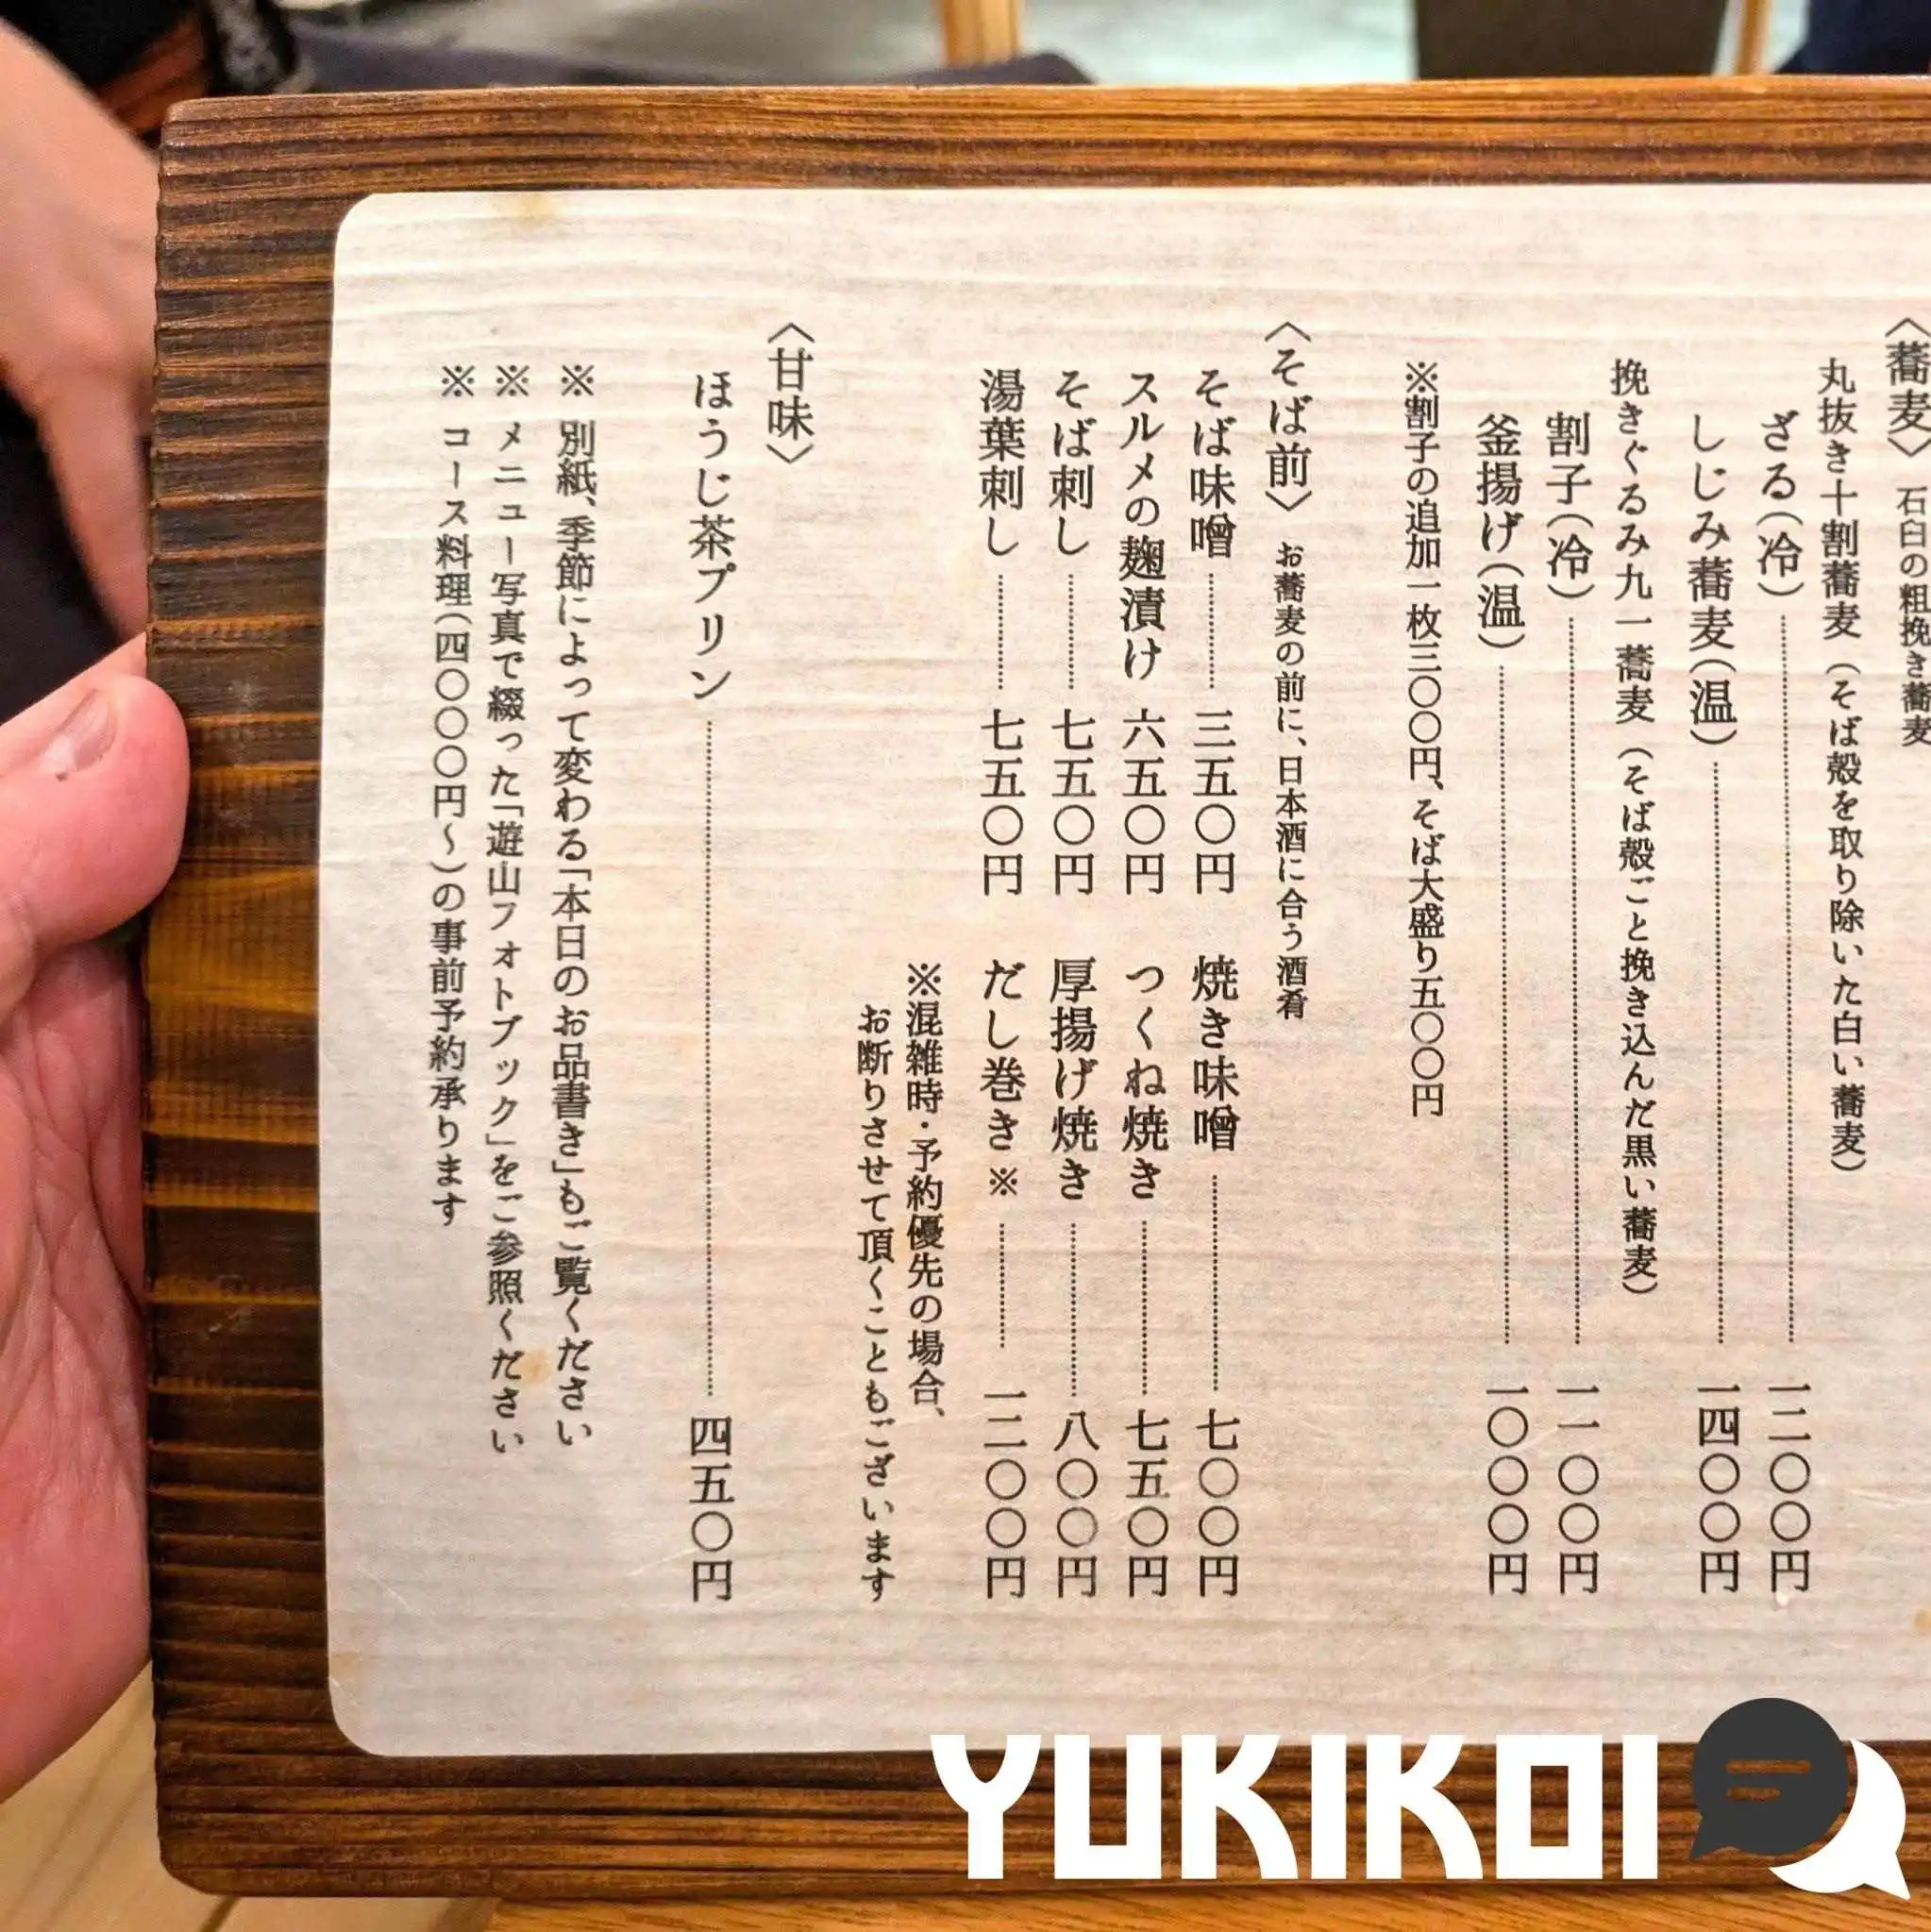 〈蕎麦〉 石臼の粗挽き蕎麦
丸抜き十割蕎麦 (そば殻を取り除いた白い蕎麦)
ざる(冷) 一二〇〇円
しじみ蕎麦(温) 一四〇〇円
挽きぐるみ九一蕎麦 (そば殻ごと挽き込んだ黒い蕎麦)
割子(冷) 一一〇〇円
釜揚げ(温) 一〇〇〇円
※割子の追加一枚三〇〇円、そば大盛り五〇〇円
〈そば前〉 お蕎麦の前に、日本酒に合う酒肴
そば味噌 三五〇円 焼き味噌 七〇〇円
スルメの麹漬け 六五〇円 つくね焼き 七五〇円
そば刺し 七五〇円 厚揚げ焼き 八〇〇円
湯葉刺し 七五〇円 だし巻き※ 一二〇〇円
※混雑時・予約優先の場合、
お断りさせて頂くこともございます
〈甘味〉
ほうじ茶プリン 四五〇円
※ 別紙、季節によって変わる「本日のお品書き」もご覧ください
※ メニュー写真で綴った「遊山フォトブック」をご参照ください
※ コース料理(四〇〇〇円〜)の事前予約承ります
YUKIKOI